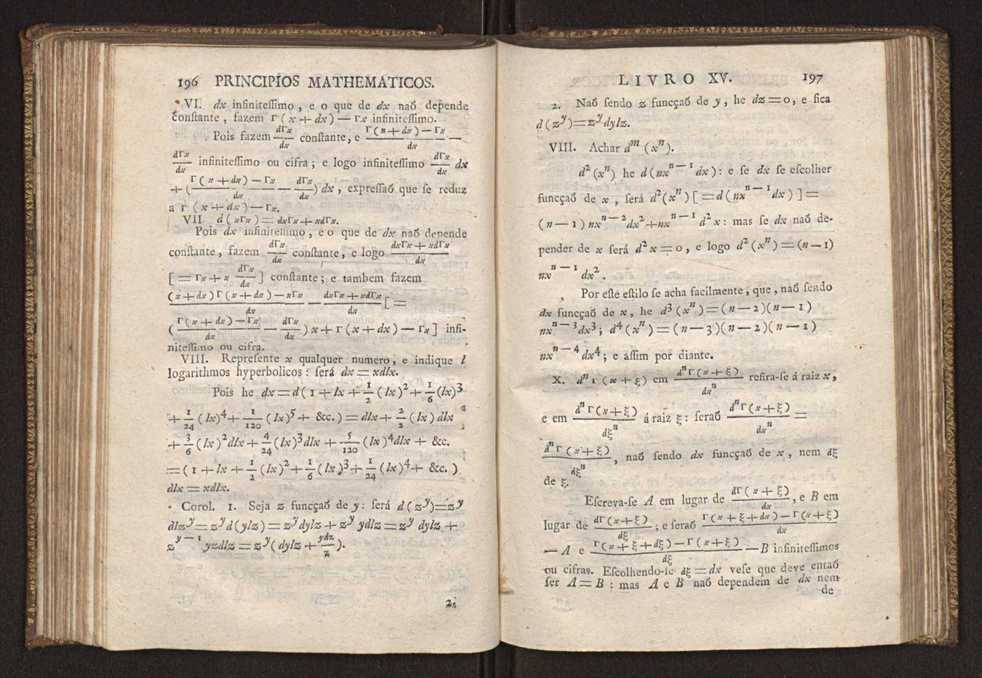 196 PRINCIPIOS MATHEMATICOS.
VI. dx infiniteſſimo, e o que de dx naõ depende
conſtante, fazem Γ(x+dx)—Γx infiniteſſimo.
Pois fazem dΓx/dx conſtante, e (Γ(x+dx)—Γx)/dx —
dΓx/dx infiniteſſimo ou cifra; e logo infiniteſſimo dΓx/dx dx
+((Γ(x+dx)—Γx)/dx — dΓx/dx)dx, expreſſaõ que ſe reduz
a Γ(x+dx)—Γx.
VII. d(xΓx)=dxΓx+xdΓx.
Pois dx infiniteſſimo, e o que de dx naõ depende
conſtante, fazem dΓx/dx conſtante, e logo (dxΓx+xdΓx)/dx
[=Γx+x dΓx/dx] conſtante; e tambem fazem
((x+dx)Γ(x+dx)—xΓx)/dx — (dxΓx+xdΓx)/dx [=
((Γ(x+dx)—Γx)/dx — dΓx/dx)x+Γ(x+dx)—Γx] infi-
niteſſimo ou cifra.
VIII. Repreſente x qualquer numero, e indique l
logarithmos hyperbolicos: ſerá dx=xdlx.
Pois he dx=d(1+lx+1/2(lx)²+1/6(lx)³
+1/24(lx)⁴+1/120(lx)⁵+&c.)=dlx+2/2(lx)dlx
+3/6(lx)²dlx+4/24(lx)³dlx+5/120(lx)⁴dlx+&c.
=(1+lx+1/2(lx)²+1/6(lx)³+1/24(lx)⁴+&c.)
dlx=xdlx.
Corol. 1. Seja z funcçaõ de y: ſerá d(z^y)=z^y
dlz^y=z^y d(ylz)=z^y dylz+z^y ydlz=z^y dylz+
z^{y—1}yzdlz=z^y(dylz+ydz/z).
2.
LIVRO XV. 197
2. Naõ ſendo z funcçaõ de y, he dz=0, e fica
d(z^y)=z^y dylz.
VIII. Achar d^m(x^n).
d²(x^n) he d(nx^{n—1}dx): e ſe dx ſe eſcolher
funcçaõ de x, ſerá d²(x^n)[=d(nx^{n—1}dx)]=
(n—1)nx^{n—2}dx²+nx^{n—1}d²x: mas ſe dx naõ de-
pender de x ſerá d²x=0, e logo d²(x^n)=(n—1)
nx^{n—1}dx².
Por eſte eſtilo ſe acha facilmente, que, naõ ſendo
dx funcçaõ de x, he d³(x^n)=(n—2)(n—1)
nx^{n—3}dx³; d⁴(x^n)=(n—3)(n—2)(n—1)
nx^{n—4}dx⁴; e aſſim por diante.
X. d^nΓ(x+ξ) em d^nΓ(x+ξ)/dx^n refira-ſe á raiz x,
e em d^nΓ(x+ξ)/dξ^n á raiz ξ: ſeraõ d^nΓ(x+ξ)/dx^n =
d^nΓ(x+ξ)/dξ^n, naõ ſendo dx funcçaõ de x, nem dξ
de ξ.
Eſcreva-ſe A em lugar de dΓ(x+ξ)/dx, e B em
lugar de dΓ(x+ξ)/dξ; e ſeraõ (Γ(x+ξ+dx)—Γ(x+ξ))/dx
—A e (Γ(x+ξ+dξ)—Γ(x+ξ))/dξ —B infiniteſſimos
ou cifras. Eſcolhendo-ſe dξ=dx veſe que deve entaõ
ſer A=B: mas A e B naõ dependem de dx nem
de